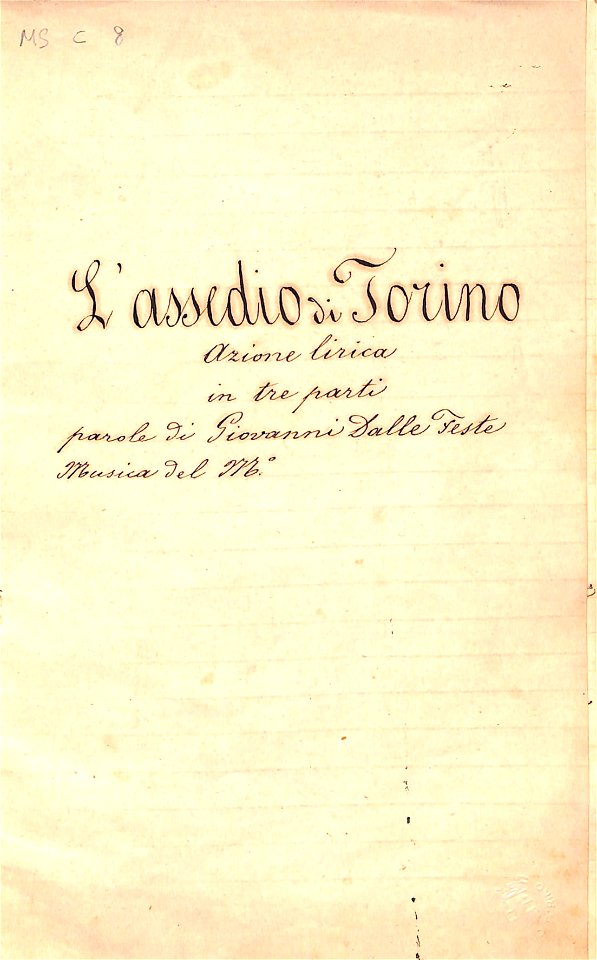 MS C 8
L'assedio di Torino
Azione lirica
in tre parti
parole di Giovanni Dalle Feste
Musica del M.º